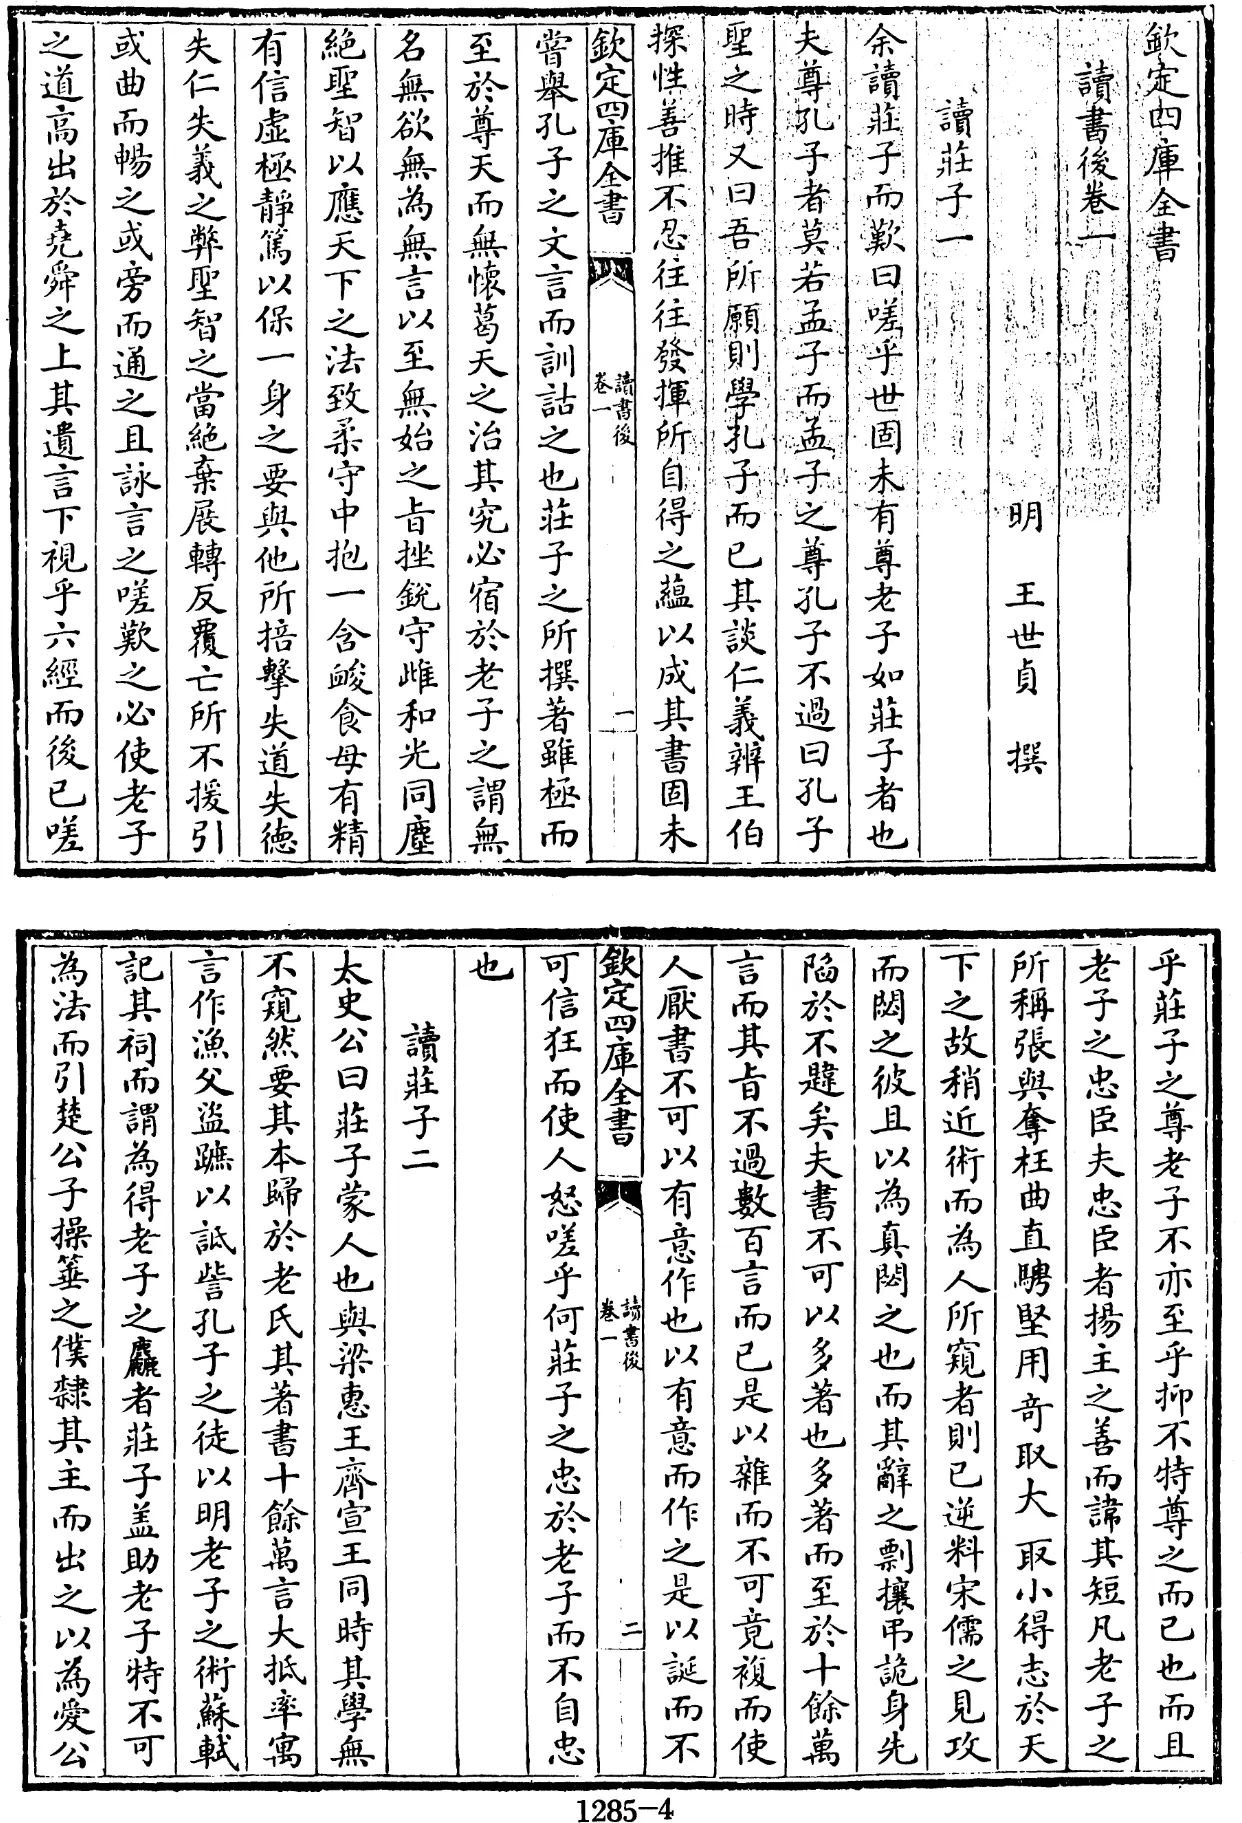 欽定四庫全書
讀書後卷一
明 王世貞 撰
讀莊子一
余讀莊子而歎曰嗟乎世固未有尊老子如莊子者也
夫尊孔子者莫若孟子而孟子之尊孔子不過曰孔子
聖之時又曰吾所願則學孔子而已其談仁義辨王伯
探性善推不忍往往發揮所自得之蘊以成其書固未
欽定四庫全書
讀書後
卷一
一
嘗舉孔子之文言而訓詁之也莊子之所撰著雖極而
至於尊天而無懷葛天之治其究必宿於老子之謂無
名無欲無為無言以至無始之旨挫銳守雌和光同塵
絕聖智以應天下之法致柔守中抱一含峻食母有精
有信虛極靜篤以保一身之要與他所掊擊失道失德
失仁失義之弊聖智之當絕棄展轉反覆亡所不援引
或曲而暢之或旁而通之且詠言之嗟歎之必使老子
之道高出於堯舜之上其遺言下視乎六經而後已嗟
乎莊子之尊老子不亦至乎抑不特尊之而已也而且
老子之忠臣夫忠臣者揚主之善而諱其短凡老子之
所稱張與奪枉曲直騁堅用奇取大取小得志於天
下之故稍近術而為人所窺者則已逆料宋儒之見攻
而閟之彼且以為真閟之也而其辭之剽攘弔詭身先
陷於不韙矣夫書不可以多著也多著而至於十餘萬
言而其旨不過數百言而已是以雜而不可竟複而使
人厭書不可以有意作也以有意而作之是以誕而不
欽定四庫全書
讀書後
卷一
二
可信狂而使人怒嗟乎何莊子之忠於老子而不自忠
也
讀莊子二
太史公曰莊子蒙人也與梁惠王齊宣王同時其學無
不窺然要其本歸於老氏其著書十餘萬言大抵率寓
言作漁父盜蹠以詆訾孔子之徒以明老子之術蘇軾
記其祠而謂為得老子之麤者莊子盖助老子特不可
為法而引楚公子操箠之僕隸其主而出之以為愛公
1285-4